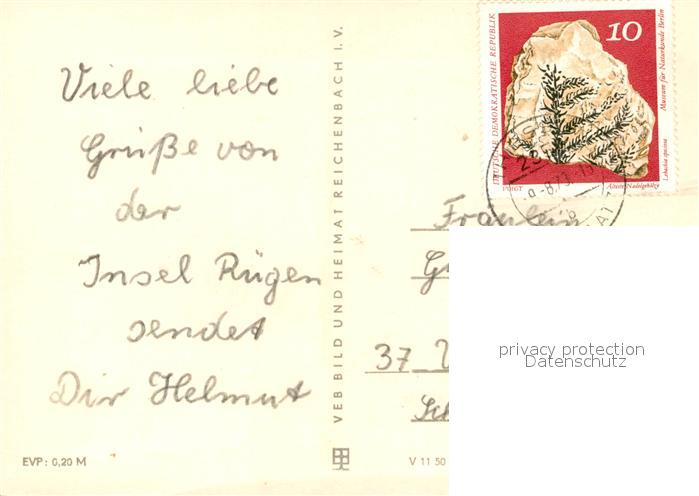 Viele liebe
Grüße von
der
Insel Rügen
sendet
Dir Helmut
EVP: 0,20 M
VEB BILD UND HEIMAT REICHENBACH I. V.
V 11 50
DEUTSCHE DEMOKRATISCHE REPUBLIK
10
Museum für Naturkunde Berlin
Lebachia speciosa
VOIGT
Älteste Nadelgehölze
Fräulein
37
privacy protection
Datenschutz